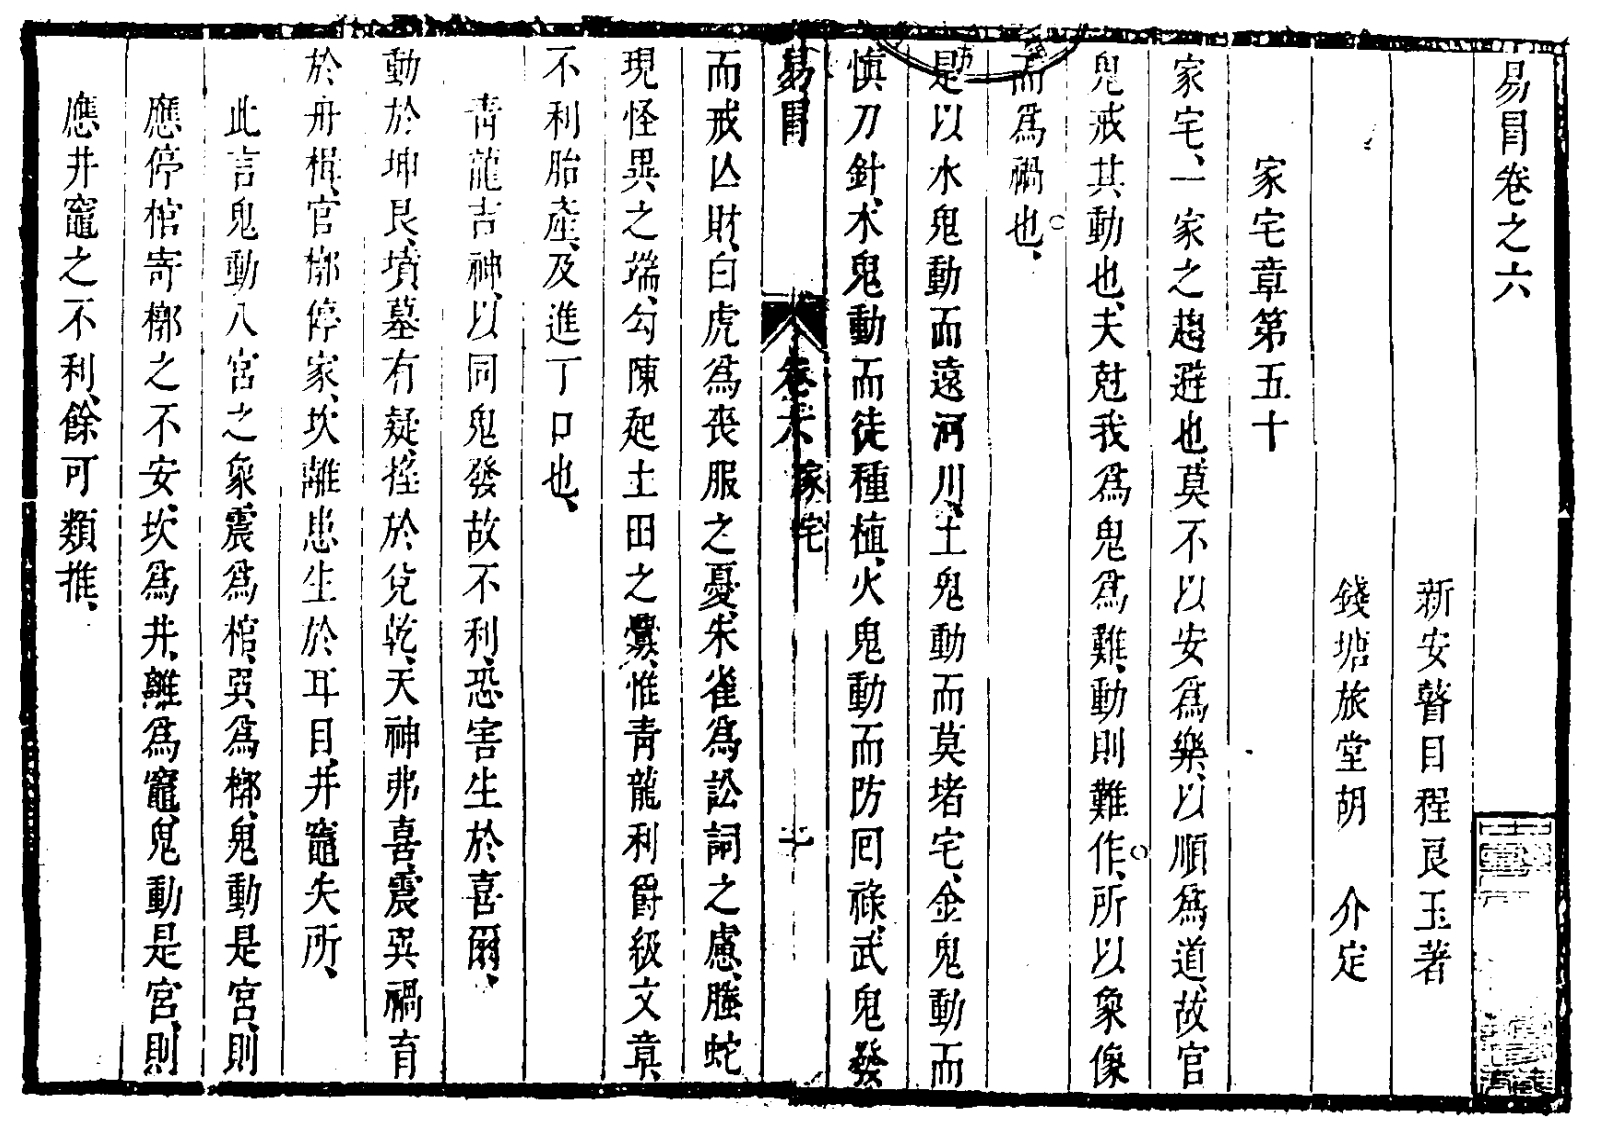 易冒卷之六
新安瞽目程良玉著
錢塘旅堂胡　介定
家宅章第五十
家宅、一家之趨避也、莫不以安爲樂、以順爲道、故官
鬼戒其動也、夫尅我爲鬼爲難、動則難作、所以象像
而爲禍也、
是以水鬼動而遠河川、土鬼動而莫堵宅、金鬼動而
慎刀針、木鬼動而徒種植、火鬼動而防回祿、武鬼發
易冒
卷六　家宅
一
而戒亾財、白虎爲喪服之憂、朱雀爲訟詞之慮、螣蛇
現怪異之端、勾陳起土田之釁、惟青龍利爵級文章、
不利胎產、及進丁口也、
青龍吉神、以同鬼發故不利、恐害生於喜爾、
動於坤艮、墳墓有疑、在於兌乾、天神弗喜、震巽禍育
於舟楫、官槨停家、坎離患生於耳目、井竈失所、
此言鬼動八宮之象、震爲棺、巽爲槨、鬼動是宮、則
應停棺寄槨之不安、坎爲井、離爲竈、鬼動是宮、則
應井竈之不利、餘可類推、